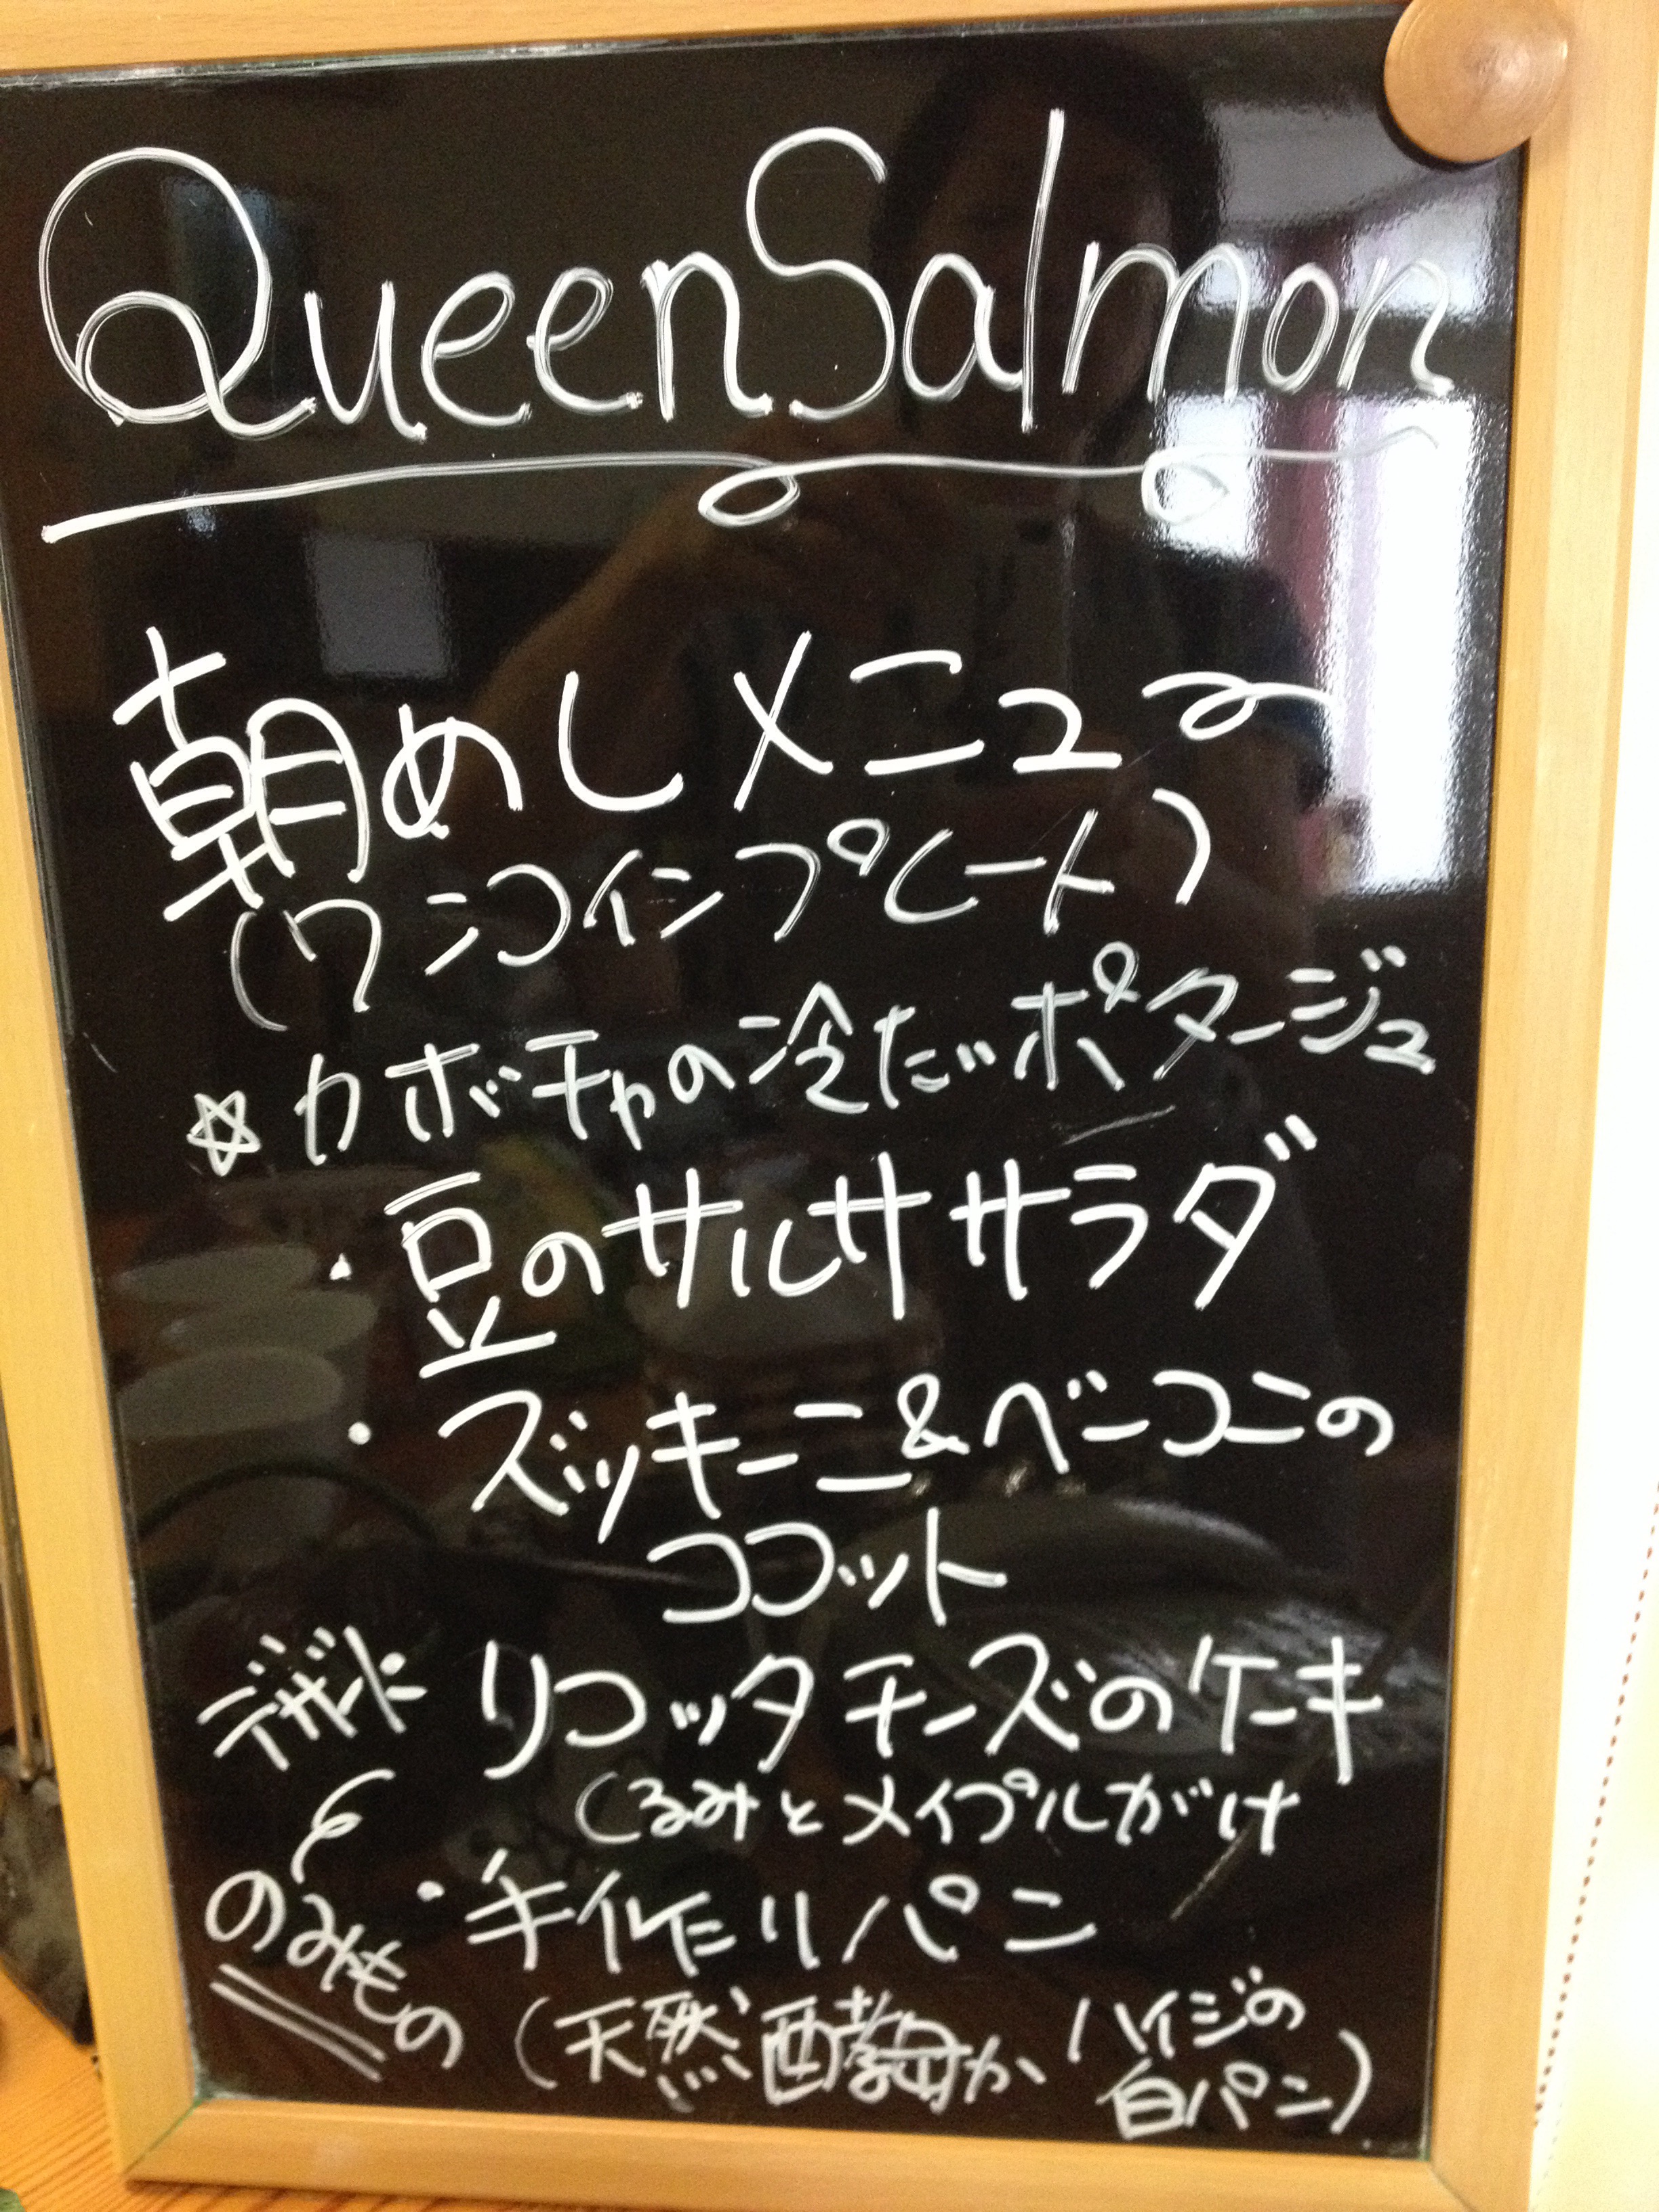 Queen Salmon
朝めしメニュ〜
(ワンコインプレート)
☆カボチャの冷たいポタージュ
・豆のサルササラダ
・ズッキーニ&ベーコンの
ココット
デザート リコッタチーズのケーキ
くるみとメイプルがけ
&
のみもの
・手作りパン
(天然酵母か、ハイジの
白パン)